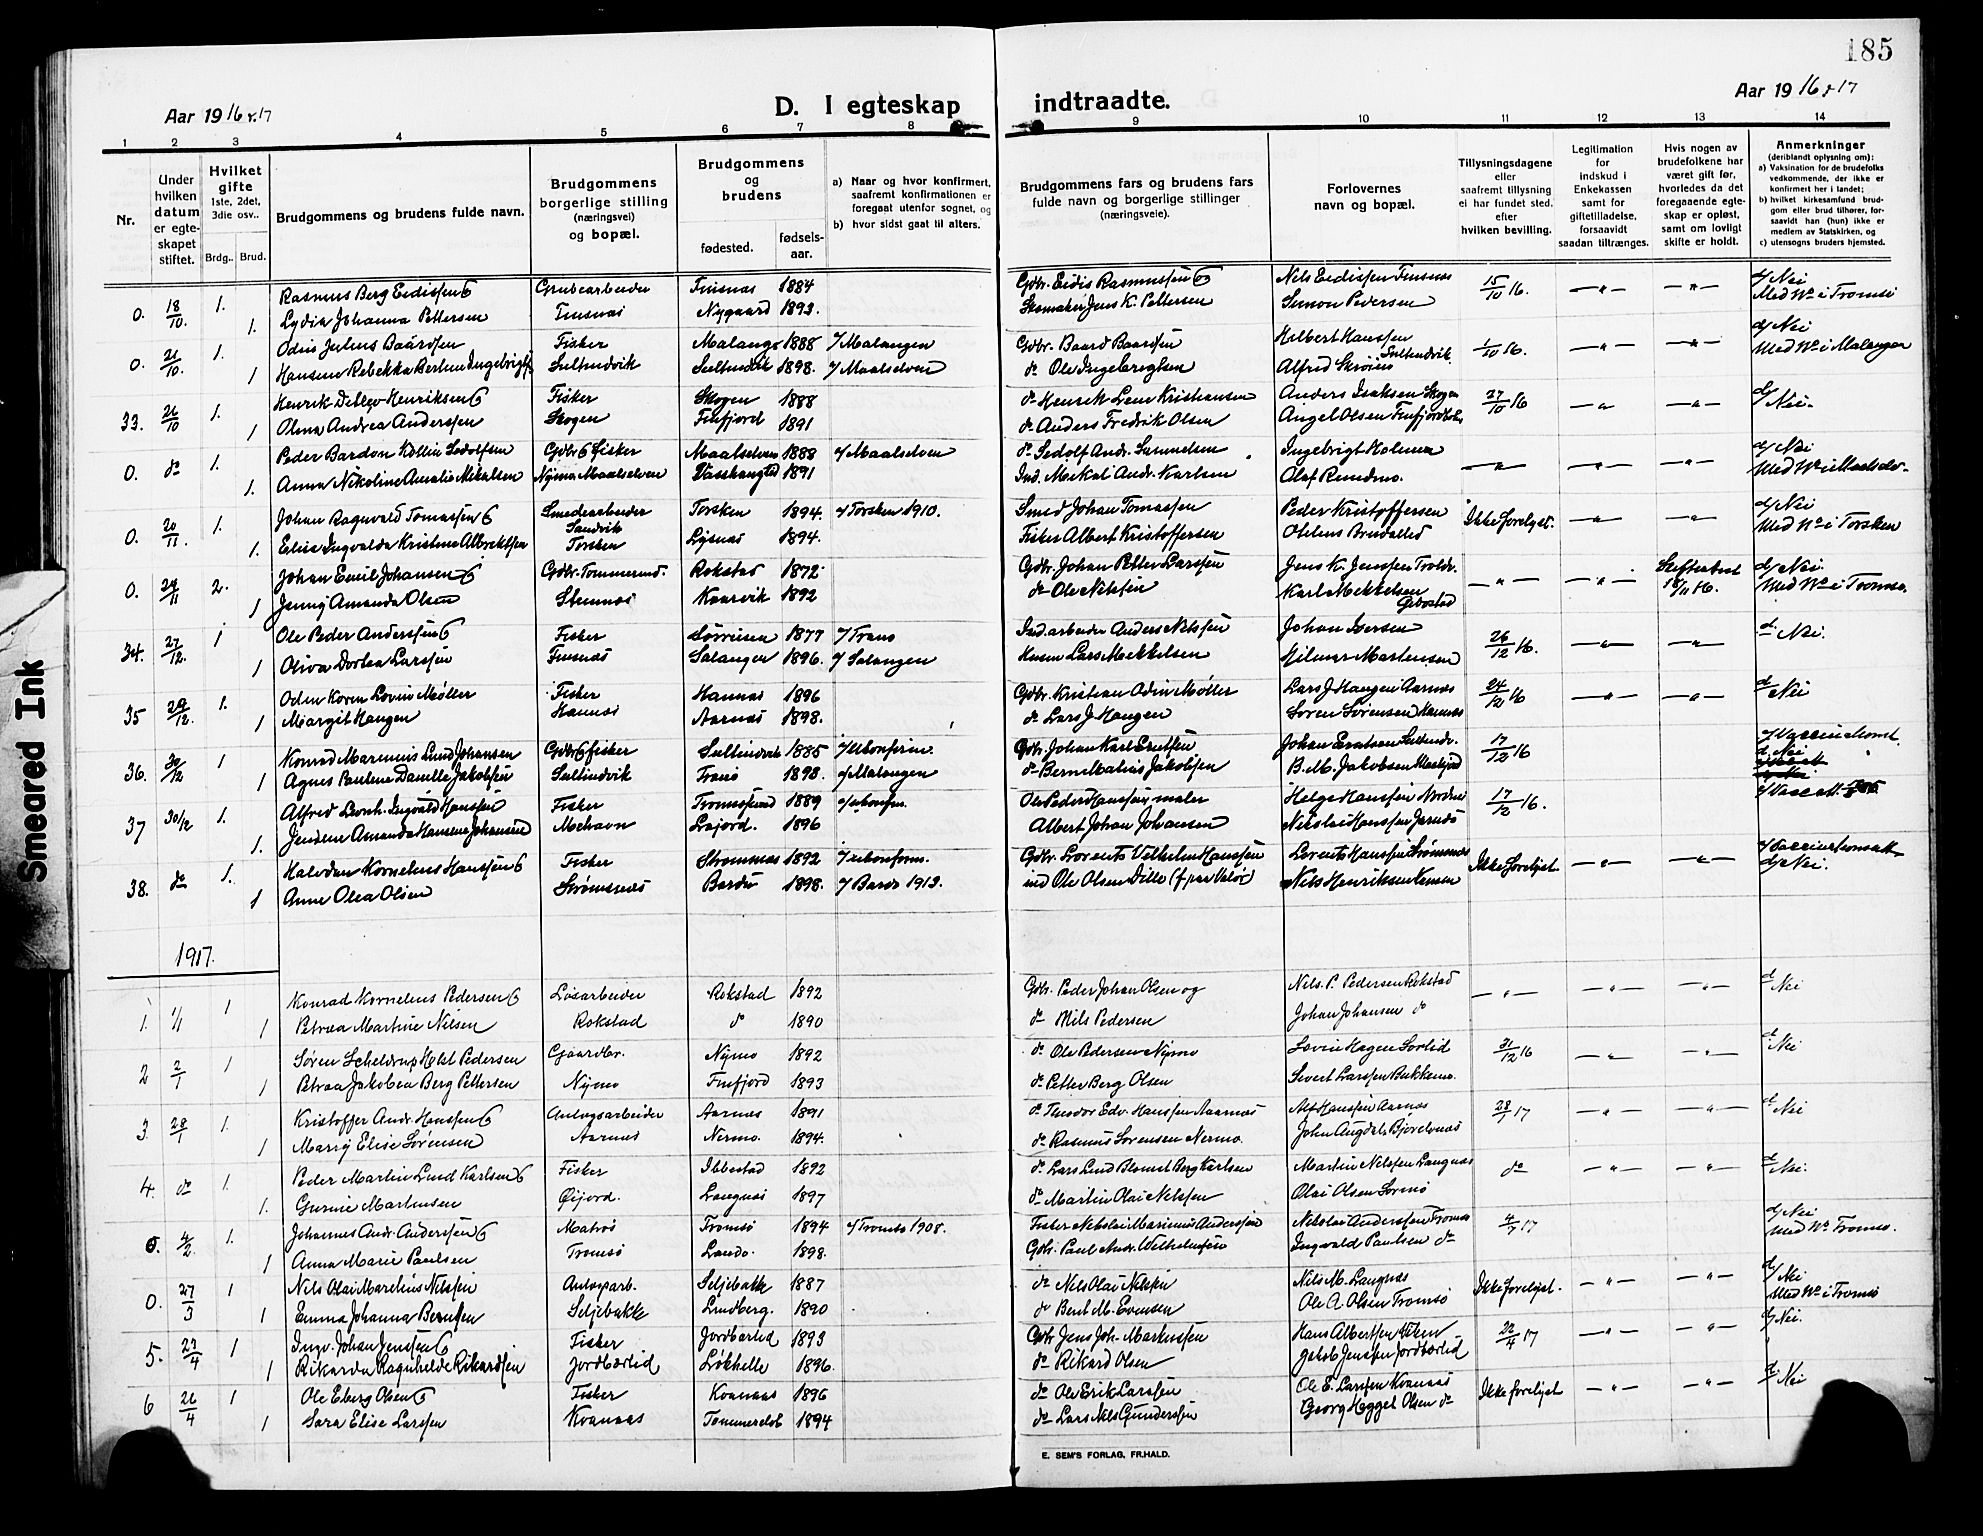 185
Aar 1916 & 17
D. I egteskap indtraadte.
Aar 1916 & 17
1 2 3 4 5 6 7 8 9 10 11 12 13 14
Nr.
Under hvilken datum er egteskapet stiftet.
Hvilket gifte 1ste, 2det, 3die osv..
Brdg.. Brud.
Brudgommens og brudens fulde navn.
Brudgommens borgerlige stilling (næringsvei) og bopæl.
Brudgommens og brudens
fødested. fødselsaar.
a) Naar og hvor konfirmert, saafremt konfirmationen er foregaat utenfor sognet, og
b) hvor sidst gaat til alters.
Brudgommens fars og brudens fars fulde navn og borgerlige stillinger (næringsveie).
Forlovernes navn og bopæl.
Tillysningsdagene eller saafremt tillysning ei har fundet sted, efter hvilken bevilling.
Legitimation for indskud i Enkekassen samt for giftetilladelse, forsaavidt saadan tiltrænges.
Hvis nogen av brudefolkene har været gift før, hvorledes da det foregaaende egteskap er opløst, samt om lovligt skifte er holdt.
Anmerkninger (deriblandt oplysning om):
a) Vaksination for de brudefolks vedkommende, der ikke er konfirmert her i landet;
b) hvilket kirkesamfund brudgom eller brud tilhører, forsaavidt han (hun) ikke er medlem av Statskirken, og
c) utensogns bruders hjemsted.
0. 18/10. 1. Rasmus Berg Eidissen G Grubearbeider Finsnæs 1884 Gdbr. Eidis Rasmussen og Nels Eidissen Finsnæs 15/10 16. d/ Nei
1. Lydia Johanna Pettersen Finsnæs Nygaard 1893. Skomaker Jens K. Pettersen Simon Pedersen Med No i Tromsø
0. 21/10. 1. Odin Julius Baardsen Fisker Malangs 1888 /Malangen Gdbr. Baard Baardsen Hilbert Hanssen 1/10 16. d/ Nei
1 Hansine Rebekka Berline Ingebrigts. Sultindvik Sultindvik 1898. /Maalselven do Ole Ingebregtsen Alfred Skroins Sultindvik Med No i Malangen
33. 26/10 1. Henrik Detlev Henriksen G Fisker Skogen 1888 do Henrik Lenu Kristiansen Anders Isaksen Skogen 27/10 16 d/ Nei.
1 Olina Andrea Anderssen Skogen Finfjord 1891 do Anders Fredrik Olsen Angel Olsen Finfjordbotn
0. do 1. Peder Bardon Kollin Sedolfsen Gdbr G Fisker Maalselven 1888 /Maalselven do Sedolf Andr. Samuelsen Ingebrigt Holmen d/ Nei
1. Anna Nikoline Amalie Mikalsen Nymo Maalselven Vasshaugted 1891 Ind. Mikal Andr. Karlsen Olaf Rundmo. Med No i Maalselv.
0. 20/11. 1. Johan Ragnvald Tomassen G Smedearbeider Torsken 1894. /Torsken 1910. Smed Johan Tomassen Peder Kristoffersen Ikke forelyst. d/ Nei
1. Elise Ingvalda Kristine Albrektsen Sandvik Torsken Lysnæs 1894. Fisker Albert Kristoffersen Otelens Brudalted Med No i Torsken
0. 24/11 2. Johan Emil Johansen G Gdbr. Tømmermd. Rokstad 1872 Gdbr. Johan Petter Larssen Jens K. Jenssen Troldv. Skifteattest 18/11 16. d/ Nei.
1 Jenny Amanda Olsen Stennæs Kaarvik 1892 do Ole Nilssen Karl Mekkelsen Gibostad Med No i Tromsø.
34. 27/12. 1 Ole Peder Anderssen G Fisker Sørreisen 1877 /Trans Ind. arbeider Anders Nilssen Johan Iversen 26/12 16. d. Nei.
1 Oliva Dortea Larssen Finsnæs Salangen 1896. /Salangen Lars Mekkelsen Hilmar Martensen
35 29/12. 1. Oden Koren Lovin Møller Fisker Hannæs 1896 Gdbr. Kristian Odin Møller Lars J. Haugen Aarnæs 24/12 16 d. Nei
1 Margit Haugen Hannæs Aarnæs 1898. do Lars J. Haugen Søren Sørensen Hannæs
36. 30/12 1 Konrad Marinius Lund Johansen Gdbr G fisker Sultindvik 1885 /Ukonferm. Gdbr. Johan Karl Erutsen Johan Erutsen Sultindv. 17/12 16 d. Nei
1 Agnes Pauline Danille Jakobsen Sultindvik Tranø 1898. /Malangen do Bern Mathis Jakobsen B. M. Jakobsen
37 30/12 1. Alfred Leonh. Ingvald Hanssen Fisker Tromsøsund 1889 /ukonfm. Ole Peder Hanssen, maler Helge Hanssen 17/12 16.
1. Jendine Amanda Hansine Johansen Mehavn Laxjord. 1896 Albert Johan Johansen Nikolai Hanssen
38. do 1. Halvdan Kornelius Hanssen G Fisker Strømnæs 1892 /ukonferm. Gdbr. Lorents Vilhelm Hanssen Lorents Hanssen Strømnæs Ikke forelyst. d/ Nei.
1 Anne Olea Olsen Strømsnæs Bardu 1898. /Bardu 1913. ind Ole Olsen Dille Nils Henriksen
1917.
1. 1/1 1 Konrad Kornelius Pedersen G Løsarbeider Rokstad 1892 Gdbr. Peder Johan Olsen og Nils. P. Pedersen Rokstad d. Nei
1 Petrea Martine Nilsen Rokstad do 1890 do Nils Pedersen Johan Johansen do
2 2/1 1 Søren Scheldrup Holst Pedersen Gaardbr. Nymo 1892 do Ole Pedersen Nymo Lovin Hagen Sorlid 31/12 16 d. Nei
1 Petraa Jakobea Berg Pettersen Nymo Finfjord 1893 do Petter Berg Olsen Sivert Larssen Bukkemo.
3. 28/1 1. Kristoffer Andr. Hanssen G Anlægsarbeider Aarnæs 1891 do Teodor Edv. Hanssen Aarnæs Alf Hanssen Aarnæs 28/1 17 d. Nei
1 Marry Elise Sørensen Aarnæs Nermo. 1894. do Rasmus Sørensen Nermo. John Augdal, Bjorelvnæs
4. do 1. Peder Martin Lund Karlsen G Fisker Ibbestad 1892 do Lars Lund Blomst Berg Karlsen Martin Nilssen Langnæs do d. Nei.
1. Gunnie Martinsen Øijord. Langnæs 1897 do Martin Olai Nilssen Olai Olsen Sormo
0. 4/2. 1. Johannes Andr. Anderssen G Matros Tromsø 1894 /Tromsø 1908. Fisker Nikolai Marinius Anderssen Nikolai Anderssen Tromsø 4/7 17 d/ Nei
1 Anna Marie Paulsen Tromsø Lando. 1898. Gdb. Paul Andr. Wilhelmsen Ingvald Paulsen do Med No Tromsø.
0. 27/3 1 Nils Olai Marelius Nilssen Anlægsarb. Seljebakk 1887 do Nils Olai Nilssen Nils M. Langnæs Ikke forelyst. d/ Nei
1 Emma Johanna Berntsen Seljebakk Lundberg. 1890 do Bent M. Evensen Ole A. Olsen Tromsø Med No i Tromsø
5. 23/4 1 Ingv. Johan Jenssen G Fisker Jordbærlid 1893 Gdb Jens Joh. Markussen Hans Albertsen 22/4 17 d/ Nei.
1 Rikarda Ragnhilde Rikardsen Jordbærlid Løkhelle 1896. do Rikard Olsen Jakob Jenssen Jordbærlid
6 26/4 1 Ole Eberg Olsen G Fisker Kvannæs 1896 do Ole Erik Larssen Ole E. Larssen Kvannæs Ikke forelyst d. Nei
1 Sara Elise Larssen Kvannæs Tømmerelv 1894 do Lars Nils Gunderssen Georg Heggel Olsen do
E. SEM'S FORLAG, FR.HALD.
Smeared Ink